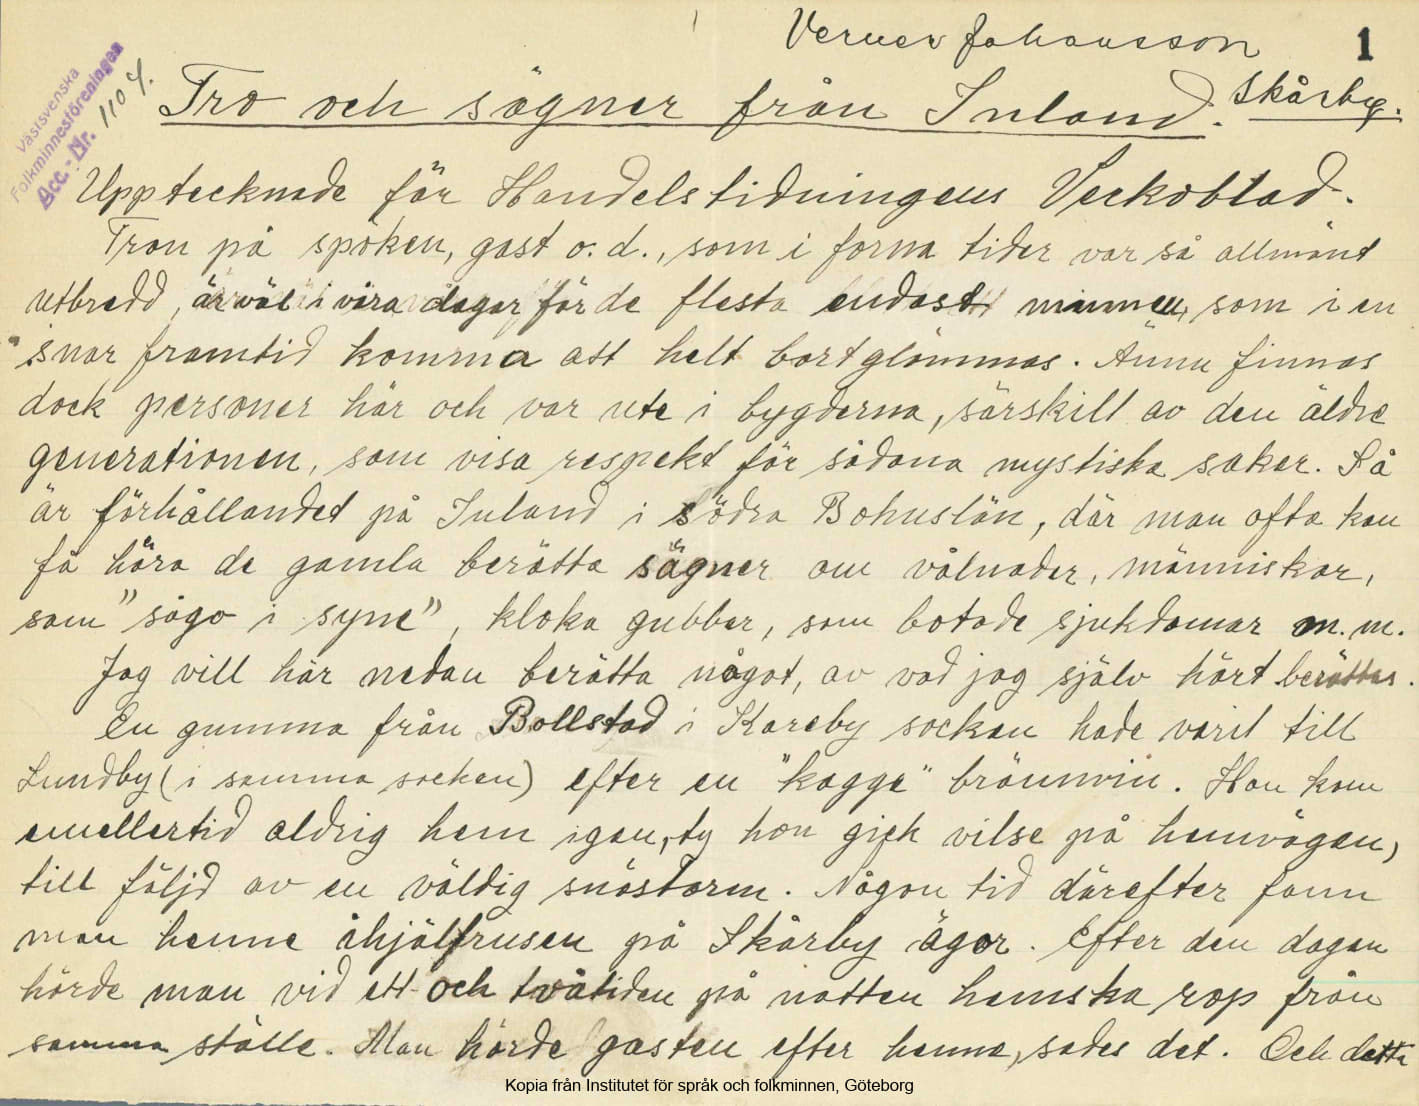 Verner Johansson
1
Skårby.
Västsvenska
Folkminnesföreningen
Acc.-Nr. 1104.
Tro och sägner från Inland.
Upptecknade för Handelstidningens Veckoblad.
Tron på spöken, gast o. d., som i forna tider var så allmänt
utbredd, är väl i våra dagar för de flesta endast minnen, som i en
snar framtid komma att helt bortglömmas. Ännu finnas
dock personer här och var ute i bygderna, särskilt av den äldre
generationen, som visa respekt för sådana mystiska saker. Så
är förhållandet på Inland i södra Bohuslän, där man ofta kan
få höra de gamla berätta sägner om vålnader, människor,
som "sågo i syne", kloka gubbar, som botade sjukdomar m. m.
Jag vill här nedan berätta något, av vad jag själv hört berättas.
En gumma från Bollstad i Kareby socken hade varit till
Lundby (i samma socken) efter en "kagge" brännvin. Hon kom
emellertid aldrig hem igen, ty hon gick vilse på hemvägen,
till följd av en väldig snöstorm. Någon tid därefter fann
man henne ihjälfrusen på Skårby ägor. Efter den dagen
hörde man vid ett och tvåtiden på natten hemska rop från
samma ställe. Man hörde gasten efter henne, sades det. Och detta
Kopia från Institutet för språk och folkminnen, Göteborg